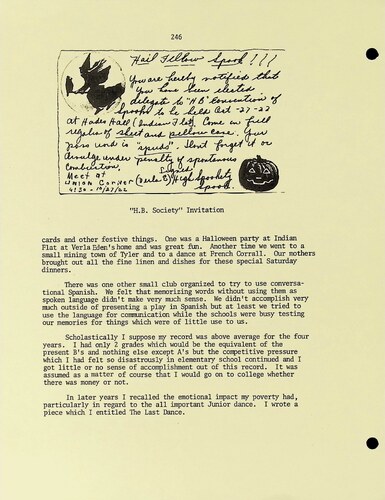 246
Hail Fellow Spook!!!
You are hereby notified that
you have been elected
delegate to "H.B" Convention of
Spooks to be held Oct-27-22
at Hades Hall (Indian Flat) Come in full
regalia of sheet and pillow case. Your
pass word is "spuds". Dont forget it or
divulge under penalty of spontaneous
combustion. Signed
Meet at (Verla E) High Spookety
Union Corner Spook.
4:30 - 10/27/22
"H.B. Society" Invitation
cards and other festive things. One was a Halloween party at Indian
Flat at Verla Eden's home and was great fun. Another time we went to a
small mining town of Tyler and to a dance at French Corrall. Our mothers
brought out all the fine linen and dishes for these special Saturday
dinners.
There was one small club organized to try to use conversa-
tional Spanish. We felt that memorizing words without using them as
spoken language didn't make very much sense. We didn't accomplish very
much outside of presenting a play in Spanish but at least we tried to
use the language for communication while the schools were busy testing
our memories for things which were of little use to us.
Scholastically I suppose my record was above average for the four
years. I had only 2 grades which would be the equivalent of the
present B's and nothing else except A's but the competitive pressure
which I had felt so disastrously in elementary school continued and I
got little or no sense of accomplishment out of this record. It was
assumed as a matter of course that I would go on to college whether
there was money or not.
In later years I recalled the emotional impact my poverty had,
particularly in regard to the all important Junior dance. I wrote a
piece which I entitled The Last Dance.